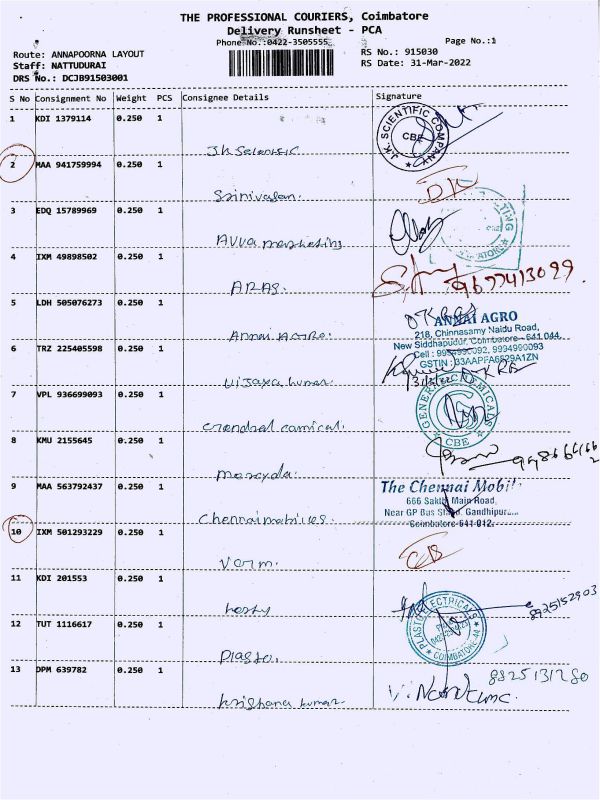 THE PROFESSIONAL COURIERS, Coimbatore
Delivery Runsheet - PCA
Phone No.:0422-3505555
Page No.:1
Route: ANNAPOORNA LAYOUT
RS No.: 915030
Staff: NATTUDURAI
RS Date: 31-Mar-2022
DRS No.: DCJB91503001
S No Consignment No Weight PCS Consignee Details Signature
1 KDI 1379114 0.250 1
J.K. SCIENTIFIC COMPANY
CBE
2 MAA 941759994 0.250 1
Srinivasan.
3 EDQ 15789969 0.250 1
Avva marketing
4 IXM 49898502 0.250 1
ARAS.
9677413099.
5 LDH 505076273 0.250 1
Annai Agro.
ANNAI AGRO
218, Chinnasamy Naidu Road,
New Siddhapudur, Coimbatore - 641 044.
6 TRZ 225405598 0.250 1
Vijaya kumar.
7 VPL 936699093 0.250 1
GENERAL CHEMICALS
CBE
8 KMU 2155645 0.250 1
9 MAA 563792437 0.250 1
Chennai mobiles
The Chennai Mobil
666 Sakthi Main Road,
Near GP Bus Stand, Gandhipur
Coimbatore-641 012.
10 IXM 501293229 0.250 1
11 KDI 201553 0.250 1
8925152903
12 TUT 1116617 0.250 1
Plasto.
PLASTO ELECTRICALS
COIMBATORE-44
13 DPM 639782 0.250 1
Krishana kumar.